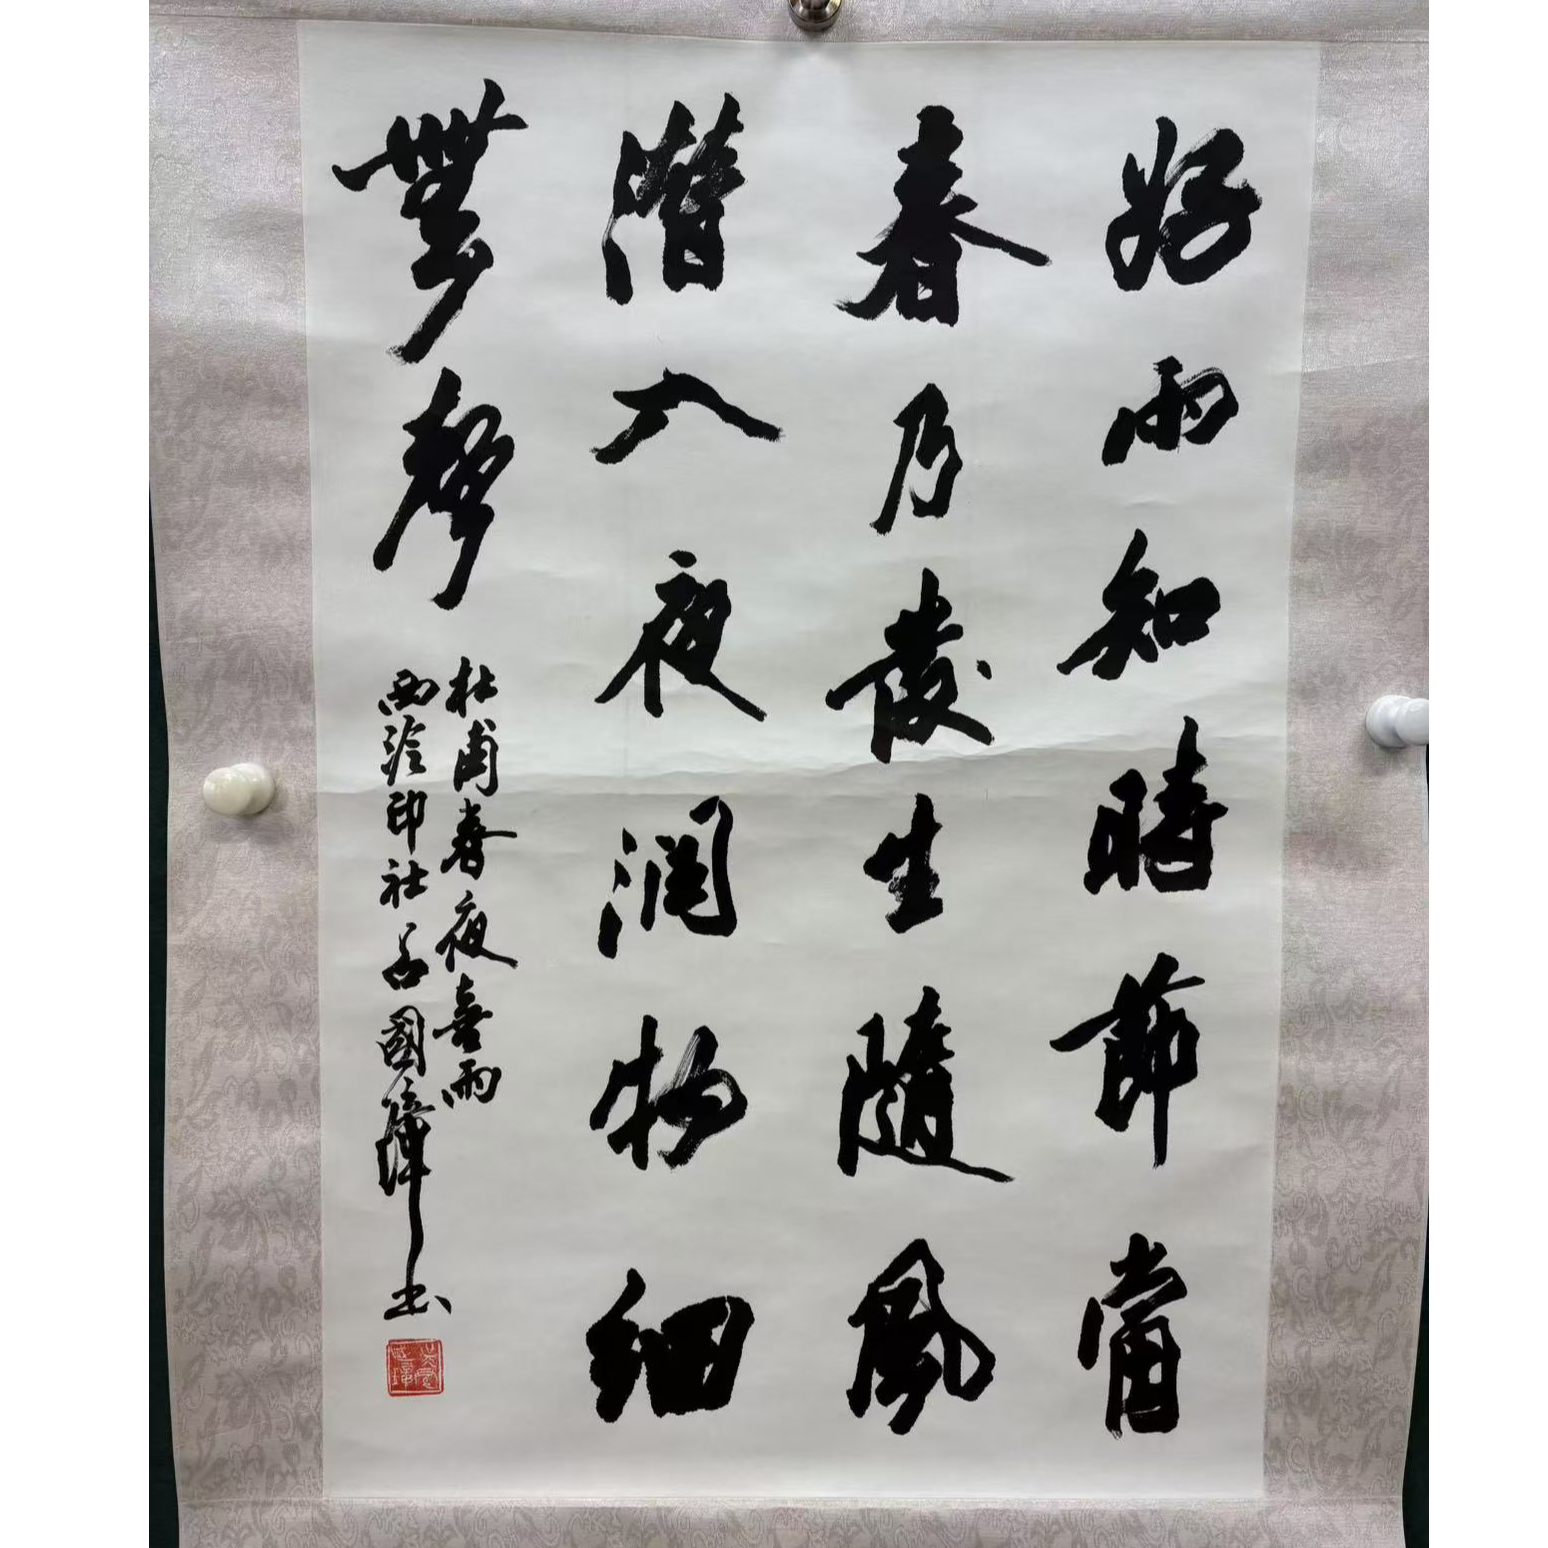 好雨知時節當
春乃發生隨風
潛入夜潤物細
無聲
杜甫春夜喜雨
西泠印社呂國璋书